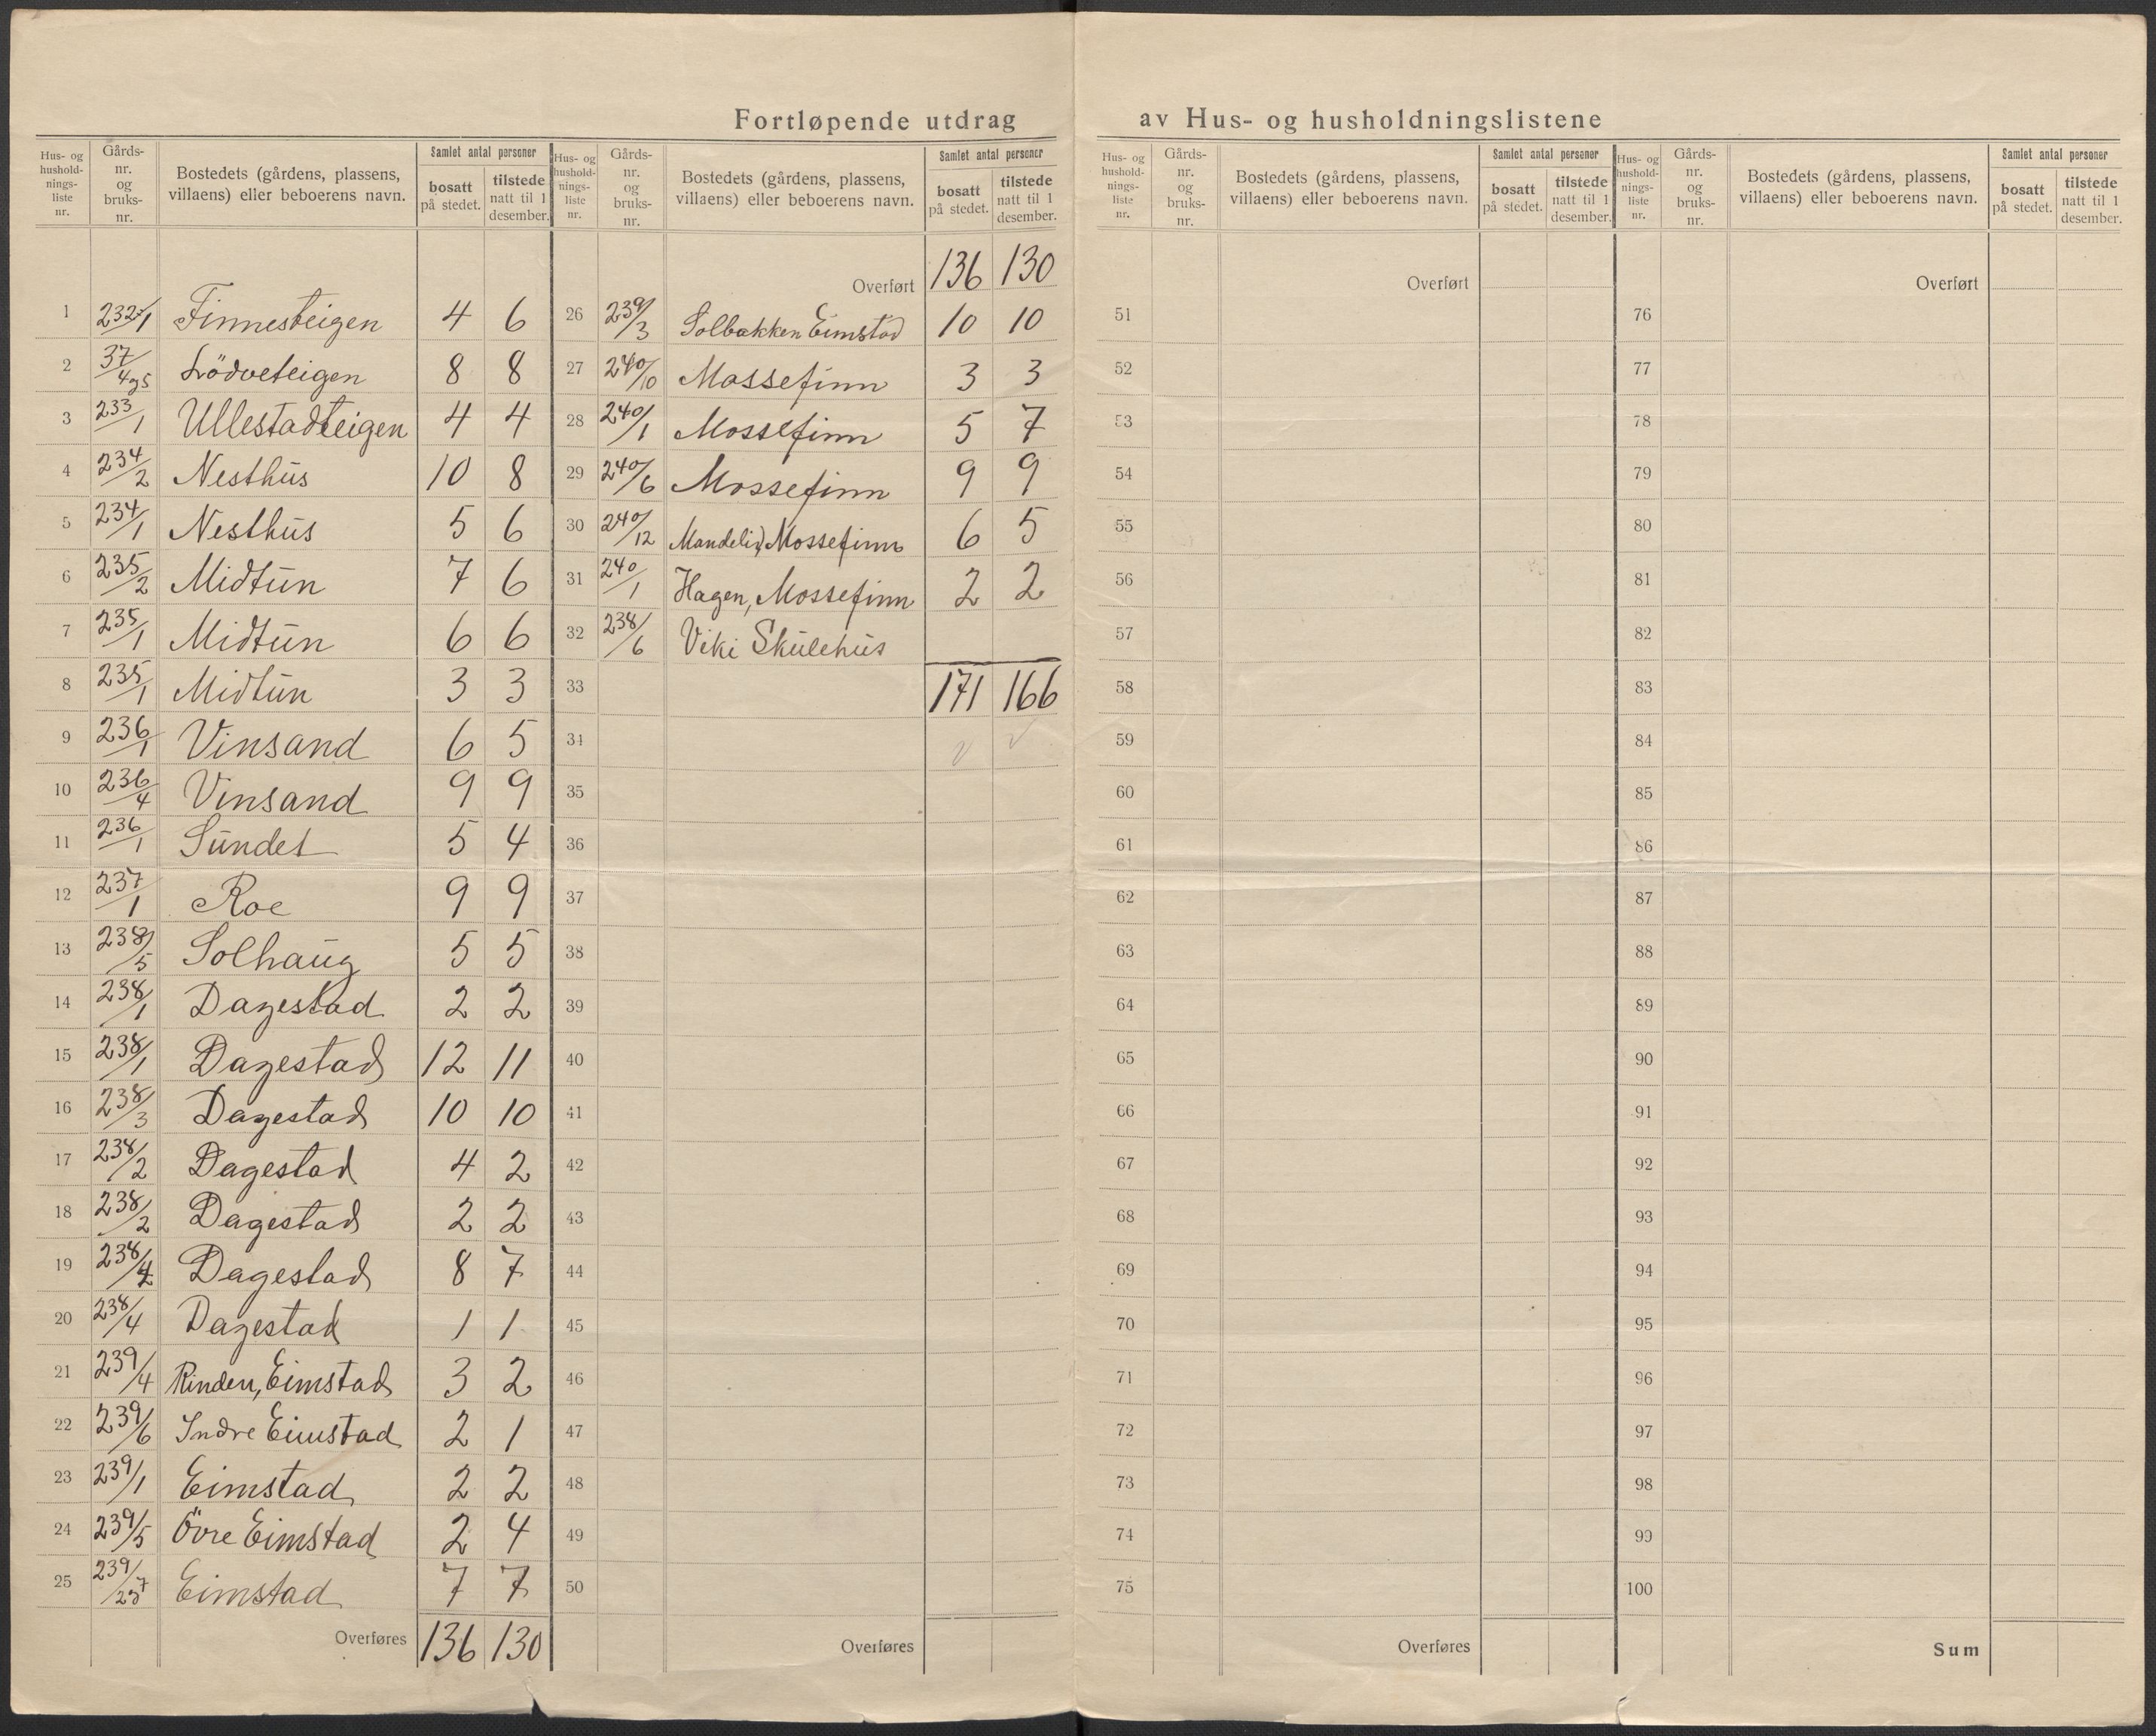 Fortløpende utdrag av Hus- og husholdningslistene
Hus- og hushold- nings- liste nr. | Gårds- nr. og bruks- nr. | Bostedets (gårdens, plassens, villaens) eller beboerens navn. | Samlet antal personer | bosatt på stedet. | tilstede natt til 1 desember.
1 232/1 Finnesteigen 4 6
2 37/4 og 5 Lödveteigen 8 8
3 233/1 Ullestadteigen 4 4
4 234/2 Nesthus 10 8
5 234/1 Nesthus 5 6
6 235/2 Midtun 7 6
7 235/1 Midtun 6 6
8 235/1 Midtun 3 3
9 236/1 Vinsand 6 5
10 236/4 Vinsand 9 9
11 236/1 Sundet 5 4
12 237/1 Roe 9 9
13 238/5 Solhaug 5 5
14 238/1 Dagestad 2 2
15 238/1 Dagestad 12 11
16 238/3 Dagestad 10 10
17 238/2 Dagestad 4 2
18 238/2 Dagestad 2 2
19 238/4 Dagestad 8 7
20 238/4 Dagestad 1 1
21 239/4 Rinden, Eimstad 3 2
22 239/6 Indre Eimstad 2 1
23 239/1 Eimstad 2 2
24 239/5 Övre Eimstad 2 4
25 239/ Eimstad 7 7
Overføres 136 130
Hus- og hushold- nings- liste nr. | Gårds- nr. og bruks- nr. | Bostedets (gårdens, plassens, villaens) eller beboerens navn. | Samlet antal personer | bosatt på stedet. | tilstede natt til 1 desember.
Overført 136 130
26 239/3 Solbakken Eimstad 10 10
27 240/10 Mossefinn 3 3
28 240/1 Mossefinn 5 7
29 240/6 Mossefinn 9 9
30 240/12 Mossefinn 6 5
31 240/1 Hagen, Mossefinn 2 2
32 238/6 Viki Skulehus
33 171 166
34
35
36
37
38
39
40
41
42
43
44
45
46
47
48
49
50
Overføres
Hus- og hushold- nings- liste nr. | Gårds- nr. og bruks- nr. | Bostedets (gårdens, plassens, villaens) eller beboerens navn. | Samlet antal personer | bosatt på stedet. | tilstede natt til 1 desember.
Overført
51
52
53
54
55
56
57
58
59
60
61
62
63
64
65
66
67
68
69
70
71
72
73
74
75
Overføres
Hus- og hushold- nings- liste nr. | Gårds- nr. og bruks- nr. | Bostedets (gårdens, plassens, villaens) eller beboerens navn. | Samlet antal personer | bosatt på stedet. | tilstede natt til 1 desember.
Overført
76
77
78
79
80
81
82
83
84
85
86
87
88
89
90
91
92
93
94
95
96
97
98
99
100
Sum